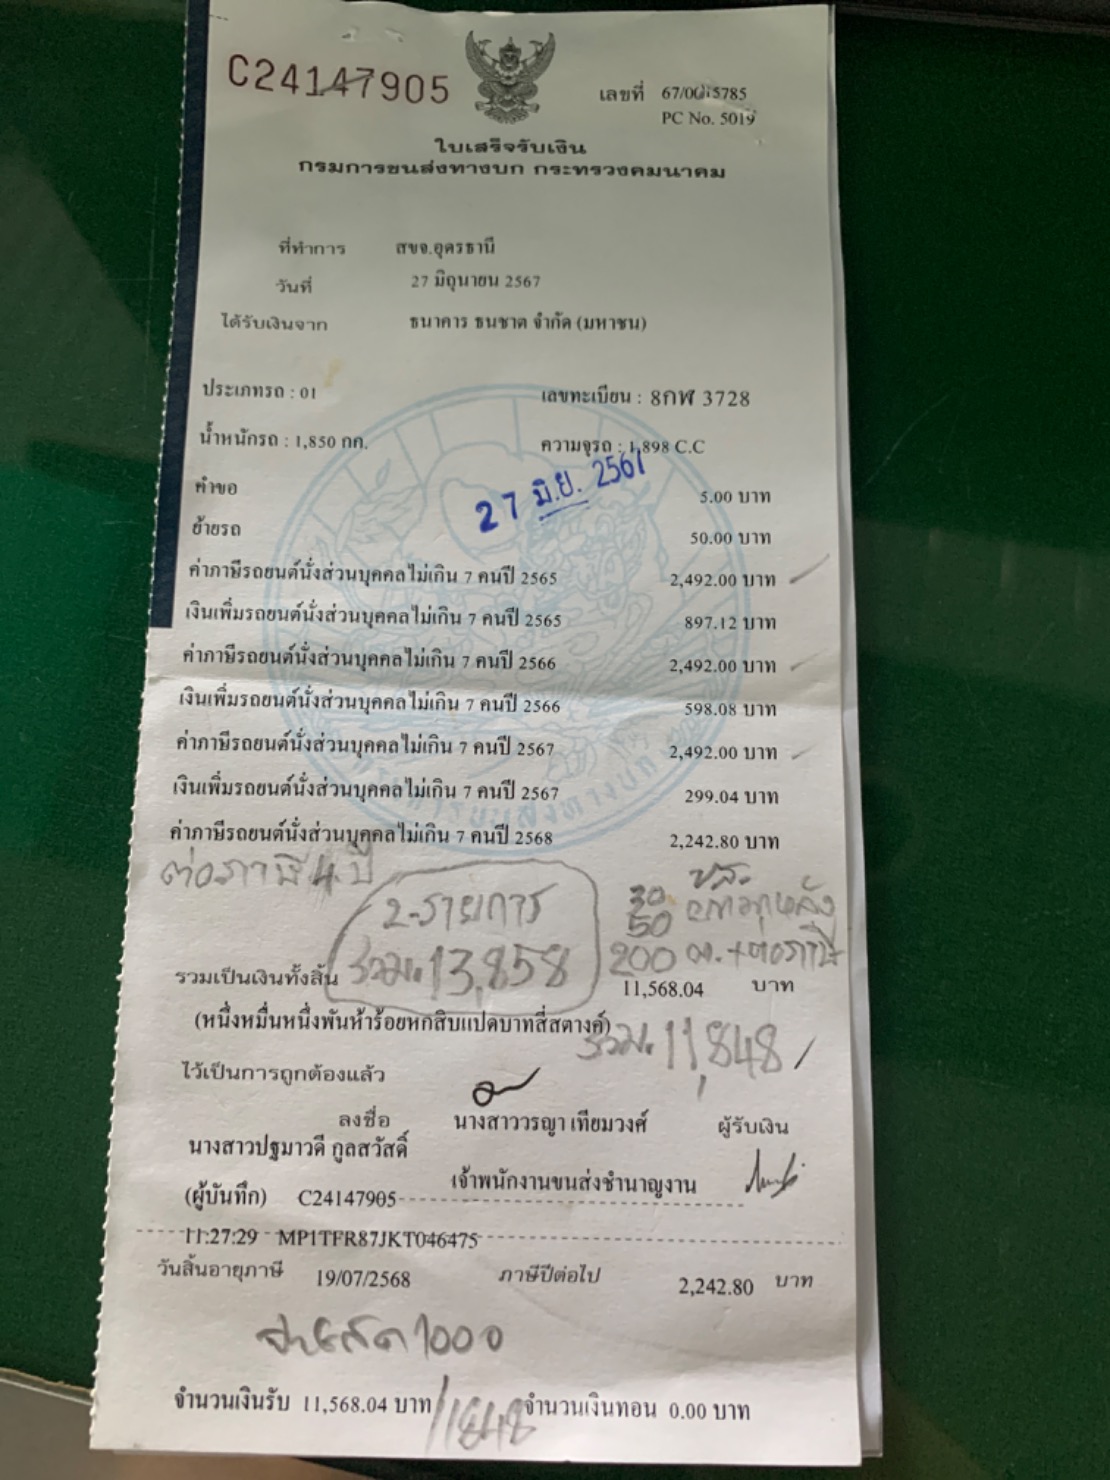 C24147905
เลขที่ 67/00
5785
PC No. 5019
ใบเสร็จรับเงิน
กรมการขนส่งทางบก กระทรวงคมนาคม
ที่ทำการ สขจ.อุดรธานี
วันที่ 27 มิถุนายน 2567
ได้รับเงินจาก ธนาคาร ธนชาต จำกัด (มหาชน)
ประเภทรถ : 01 เลขทะเบียน : 8กฬ 3728
น้ำหนักรถ : 1,850 กก. ความจุรถ : 1,898 C.C
27 มิ.ย. 2567
คำขอ 5.00 บาท
ย้ายรถ 50.00 บาท
ค่าภาษีรถยนต์นั่งส่วนบุคคลไม่เกิน 7 คนปี 2565 2,492.00 บาท
เงินเพิ่มรถยนต์นั่งส่วนบุคคลไม่เกิน 7 คนปี 2565 897.12 บาท
ค่าภาษีรถยนต์นั่งส่วนบุคคลไม่เกิน 7 คนปี 2566 2,492.00 บาท
เงินเพิ่มรถยนต์นั่งส่วนบุคคลไม่เกิน 7 คนปี 2566 598.08 บาท
ค่าภาษีรถยนต์นั่งส่วนบุคคลไม่เกิน 7 คนปี 2567 2,492.00 บาท
เงินเพิ่มรถยนต์นั่งส่วนบุคคลไม่เกิน 7 คนปี 2567 299.04 บาท
ค่าภาษีรถยนต์นั่งส่วนบุคคลไม่เกิน 7 คนปี 2568 2,242.80 บาท
ต่อภาษี 4 ปี
2-รายการ 30
50
รวม. 13,858 200
รวมเป็นเงินทั้งสิ้น 11,568.04 บาท
(หนึ่งหมื่นหนึ่งพันห้าร้อยหกสิบแปดบาทสี่สตางค์)
รวม. 11,848
ไว้เป็นการถูกต้องแล้ว
ลงชื่อ นางสาววรญา เทียมวงศ์ ผู้รับเงิน
นางสาวปฐมาวดี กูลสวัสดิ์
เจ้าพนักงานขนส่งชำนาญงาน
(ผู้บันทึก) C24147905
11:27:29 MP1TFR87JKT046475
วันสิ้นอายุภาษี 19/07/2568 ภาษีปีต่อไป 2,242.80 บาท
1000
จำนวนเงินรับ 11,568.04 บาท จำนวนเงินทอน 0.00 บาท
11848